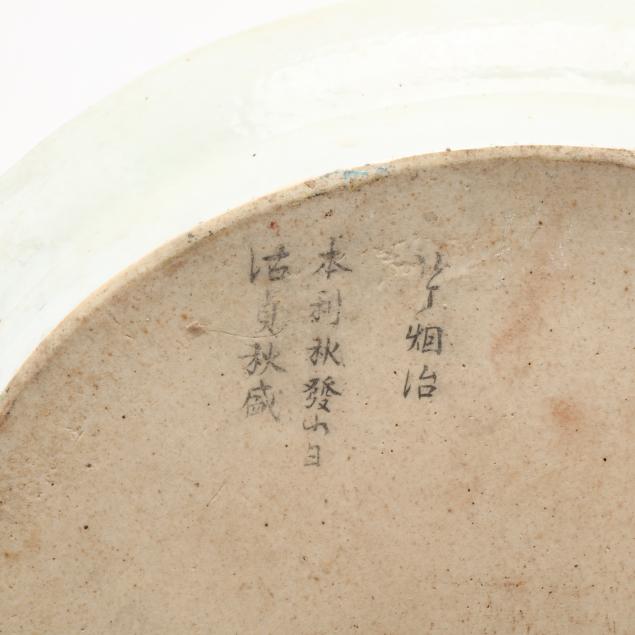 烟治
本利秋發山日
沽貞秋盛